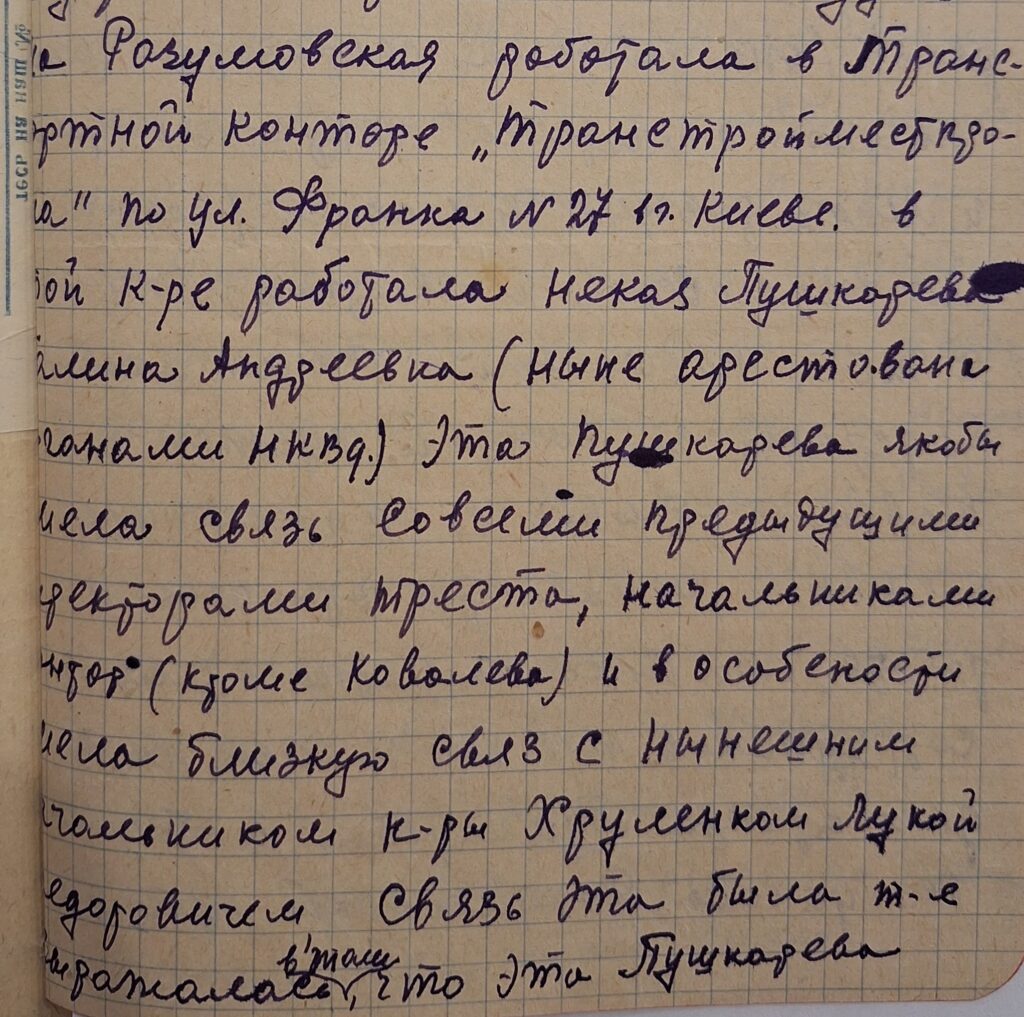 на Разумовская работала в Транс-
ортной конторе „Трансстройместпро-
ма" по ул. Франка N 27 в г. Киеве. в
ой к-ре работала некая Пушкарева
алина Андреевна (ныне арестована
рганами НКВД.) Эта Пушкарева якобы
мела связь со всеми предыдущими
ректорами треста, начальниками
нтор (кроме Ковалева) и в особености
мела близкую связ с нынешним
ачальником к-ры Хруленком Лукой
едоровичем Связь эта была т-е
выражалась в'том, что эта Пушкарева